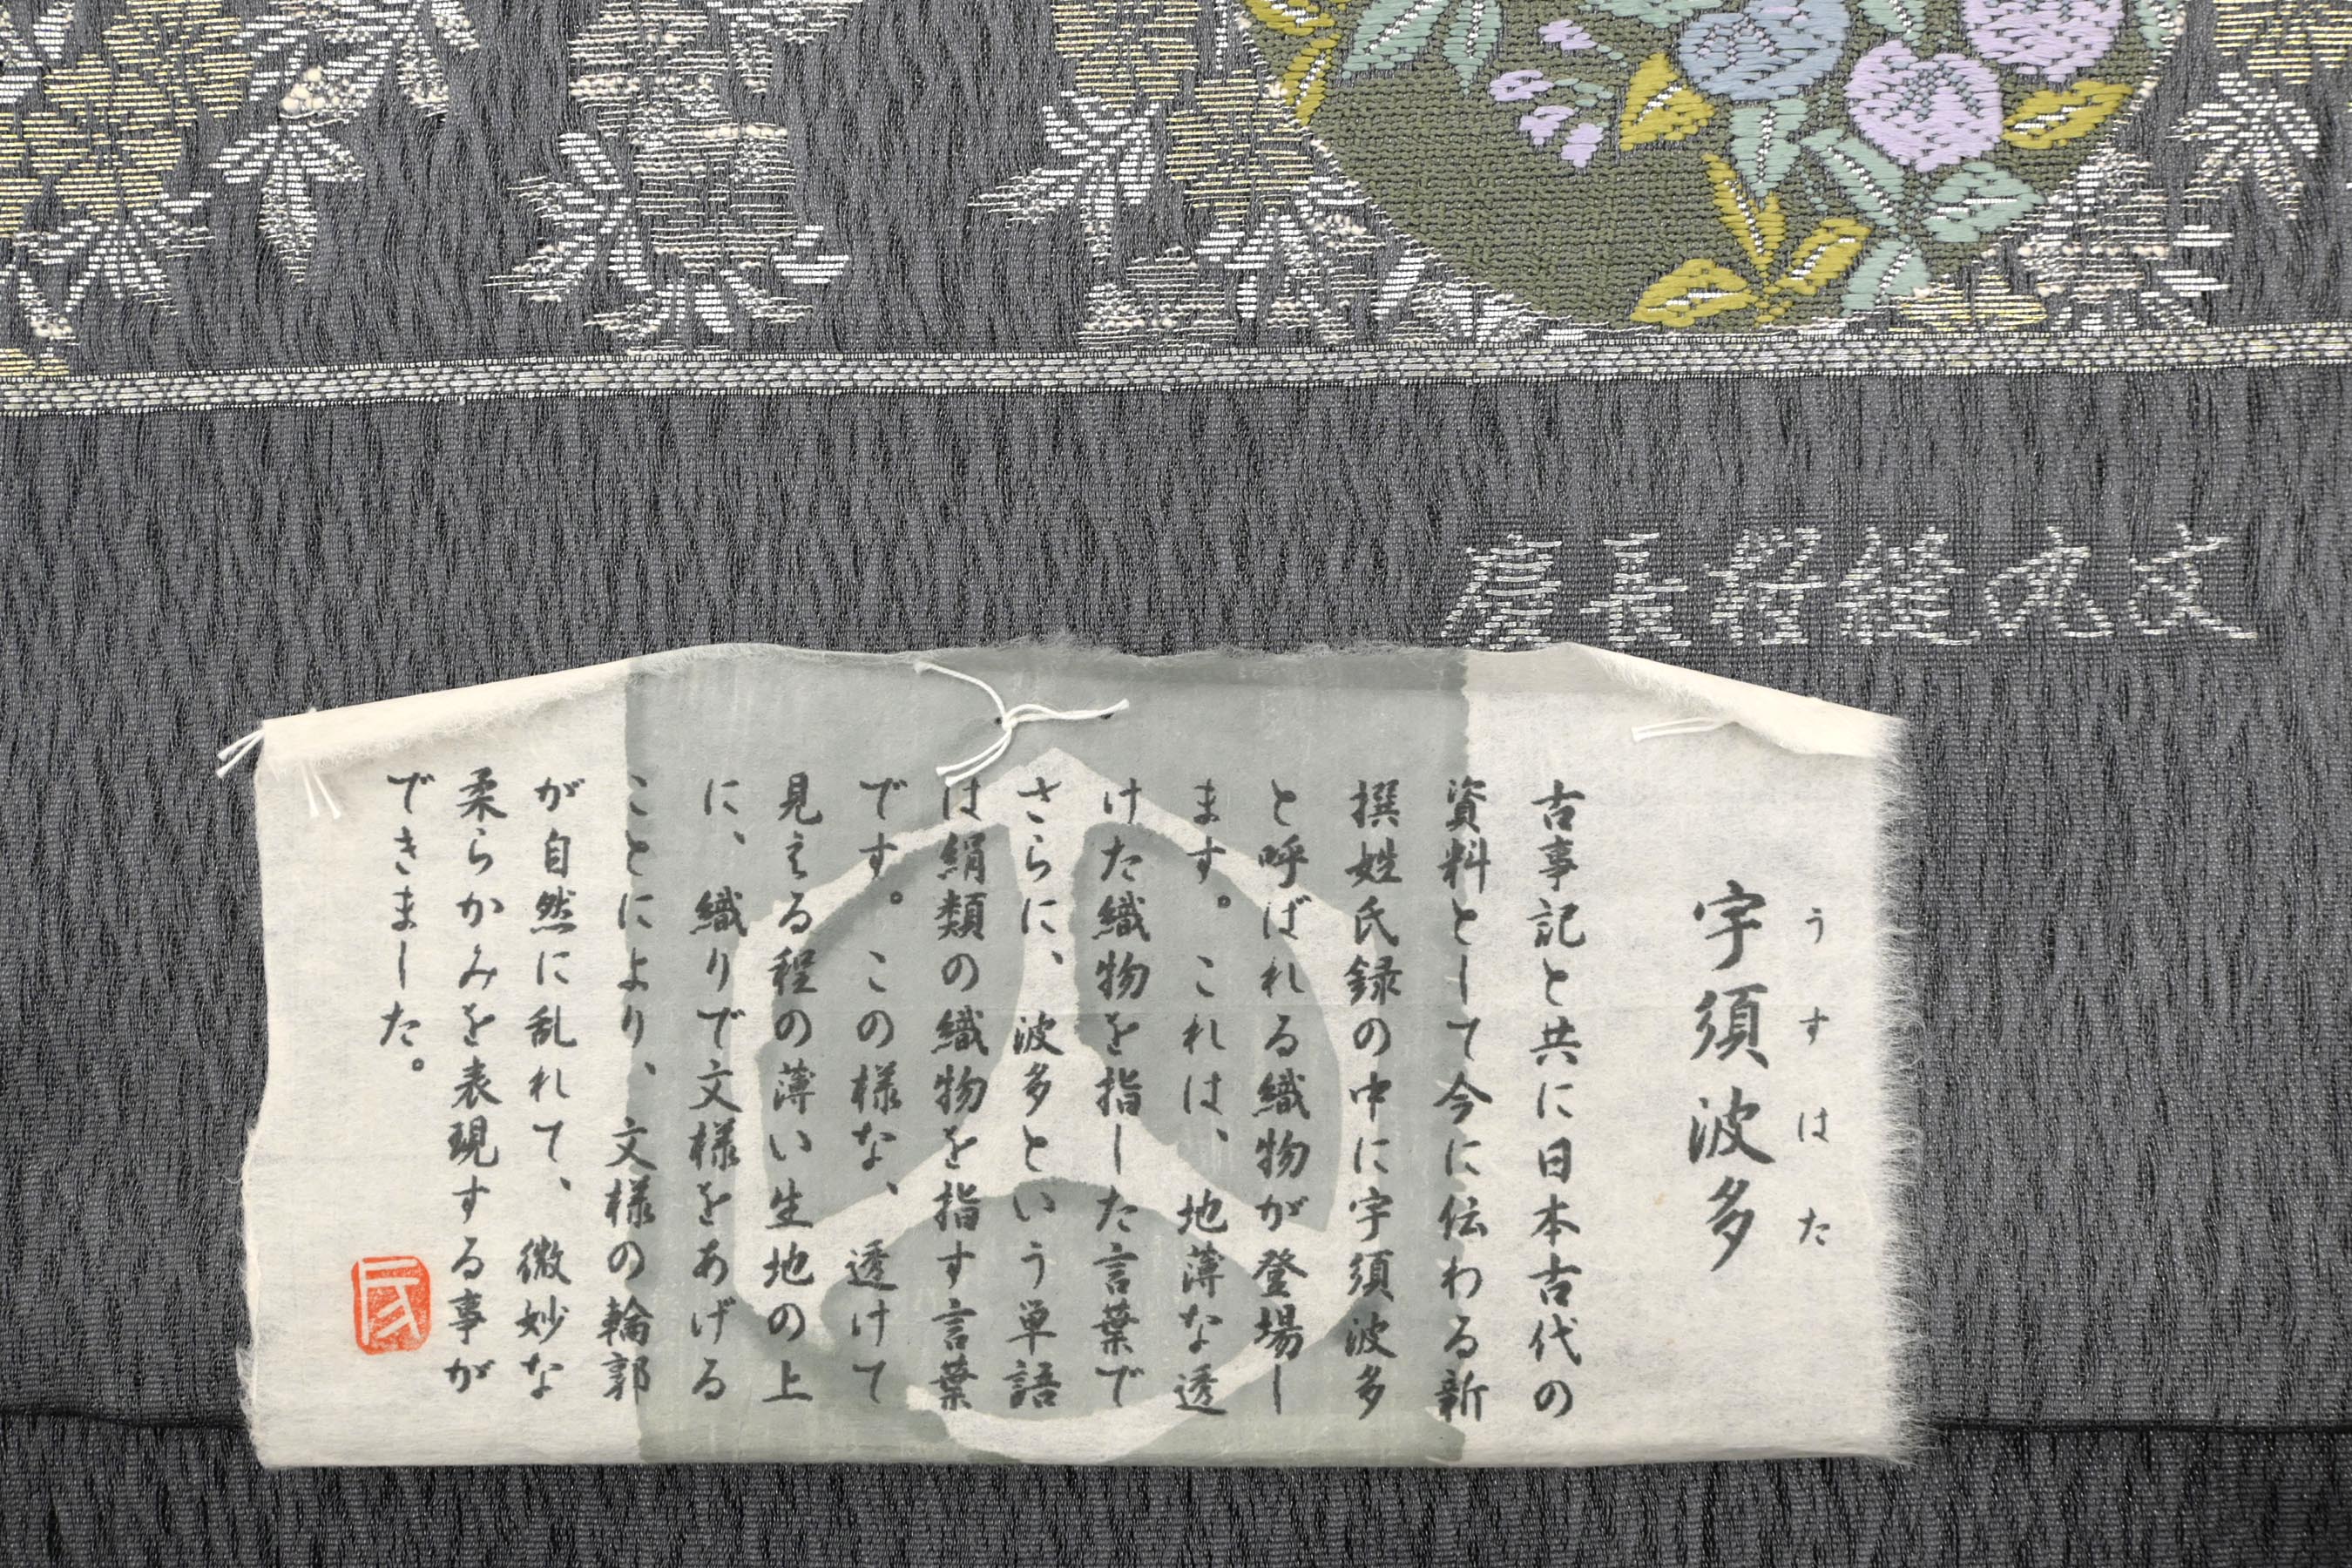 慶長 縫丸文
うすはた
宇須波多
古事記と共に日本古代の
資料として今に伝わる新
撰姓氏録の中に宇須波多
と呼ばれる織物が登場し
ます。これは、地薄な透
けた織物を指した言葉で
さらに、波多という単語
は絹類の織物を指す言葉
です。この様な、透けて
見える程の薄い生地の上
に、織りで文様をあげる
ことにより、文様の輪郭
が自然に乱れて、微妙な
柔らかみを表現する事が
できました。